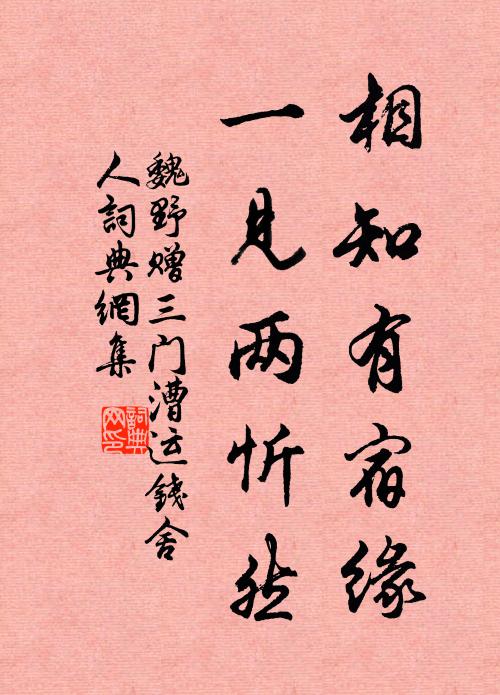 相知有宿缘
一见两忻然
魏野赠三门漕运錢舍
人詞典網集
詞典
网印